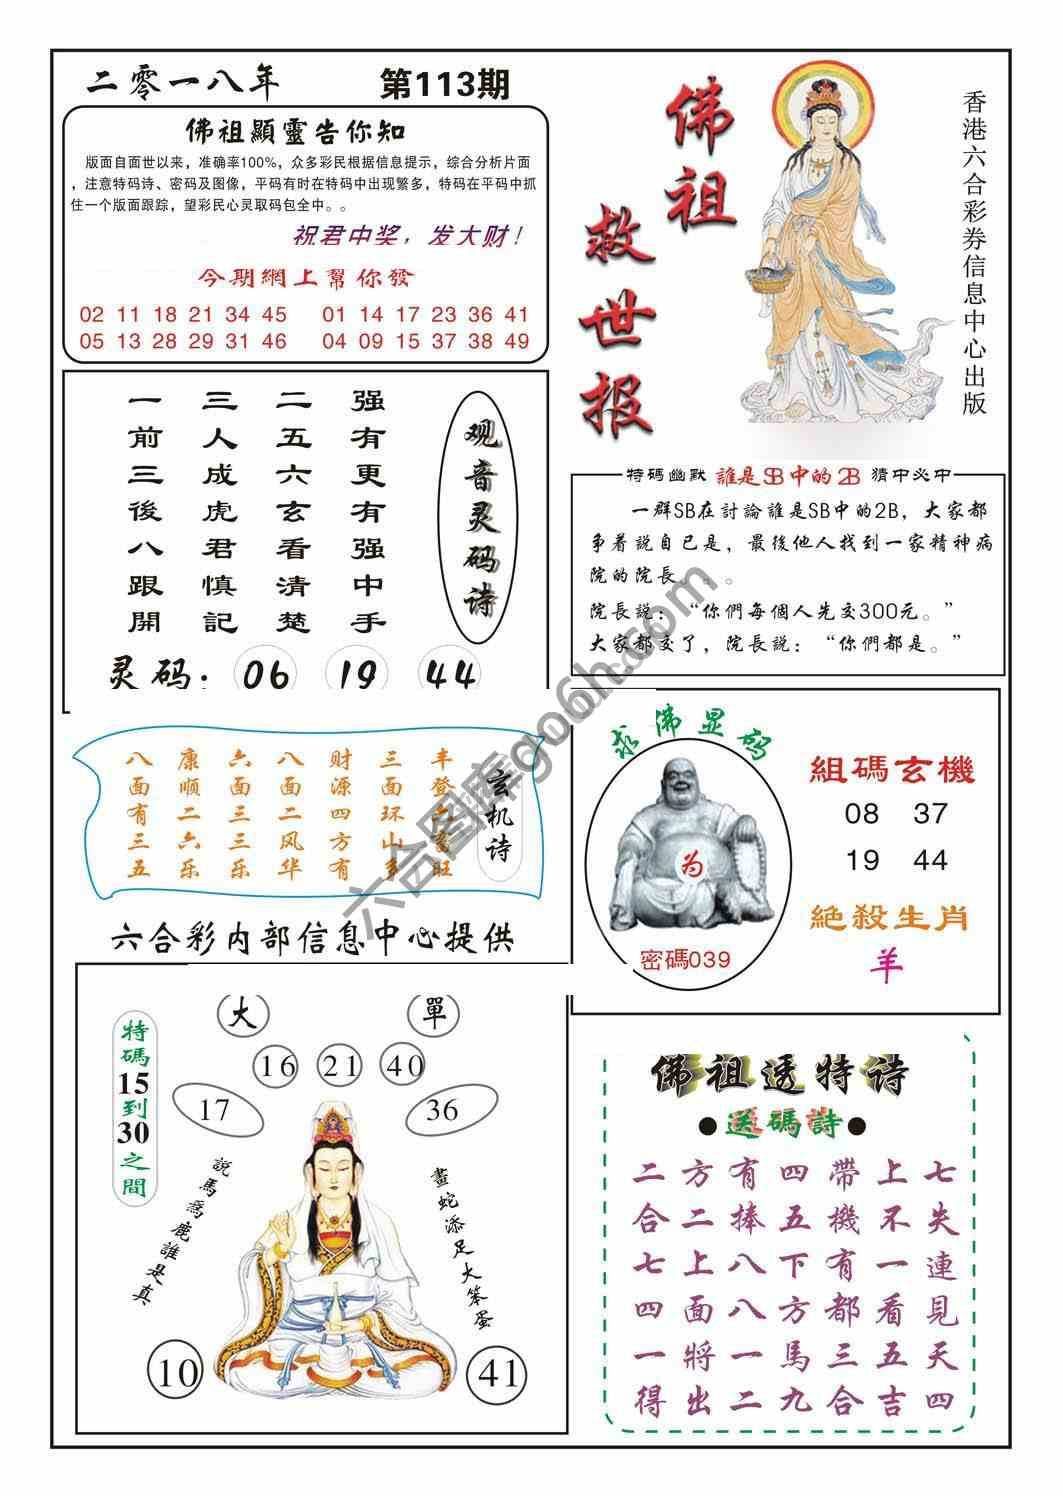 二零一八年
第113期
佛祖顯靈告你知
版面自面世以来，准确率100%，众多彩民根据信息提示，综合分析片面
，注意特码诗、密码及图像，平码有时在特码中出现繁多，特码在平码中抓
住一个版面跟踪，望彩民心灵取码包全中。。
祝君中奖，发大财！
今期網上幫你發
02 11 18 21 34 45 01 14 17 23 36 41
05 13 28 29 31 46 04 09 15 37 38 49
佛祖
救世报
香港六合彩券信息中心出版
一三二强
前人五有
三成六更
後虎玄有
八君看强
跟慎清中
開記楚手
观音灵码诗
灵码：06 19 44
特碼幽默 誰是SB中的2B 猜中必中
一群SB在討論誰是SB中的2B，大家都
争着説自已是，最後他人找到一家精神病
院的院長。。。
院長説：“你們每個人先交300元。”
大家都交了，院長説：“你們都是。”
八康六八财三丰
面顺面面源面登
有二三二四环二
三六三风方山畜
五乐乐华有多旺
玄机诗
六合彩内部信息中心提供
求佛显码
为
密碼039
組碼玄機
08 37
19 44
絶殺生肖
羊
大 單
16 21 40
17 36
特碼15到30之間
説馬爲鹿誰是真
畫蛇添足大笨蛋
10 41
佛祖透特诗
●送碼詩●
二方有四帶上七
合二捧五機不失
七上八下有一連
四面八方都看見
一將一馬三五天
得出二九合吉四
六合图库go6h.com